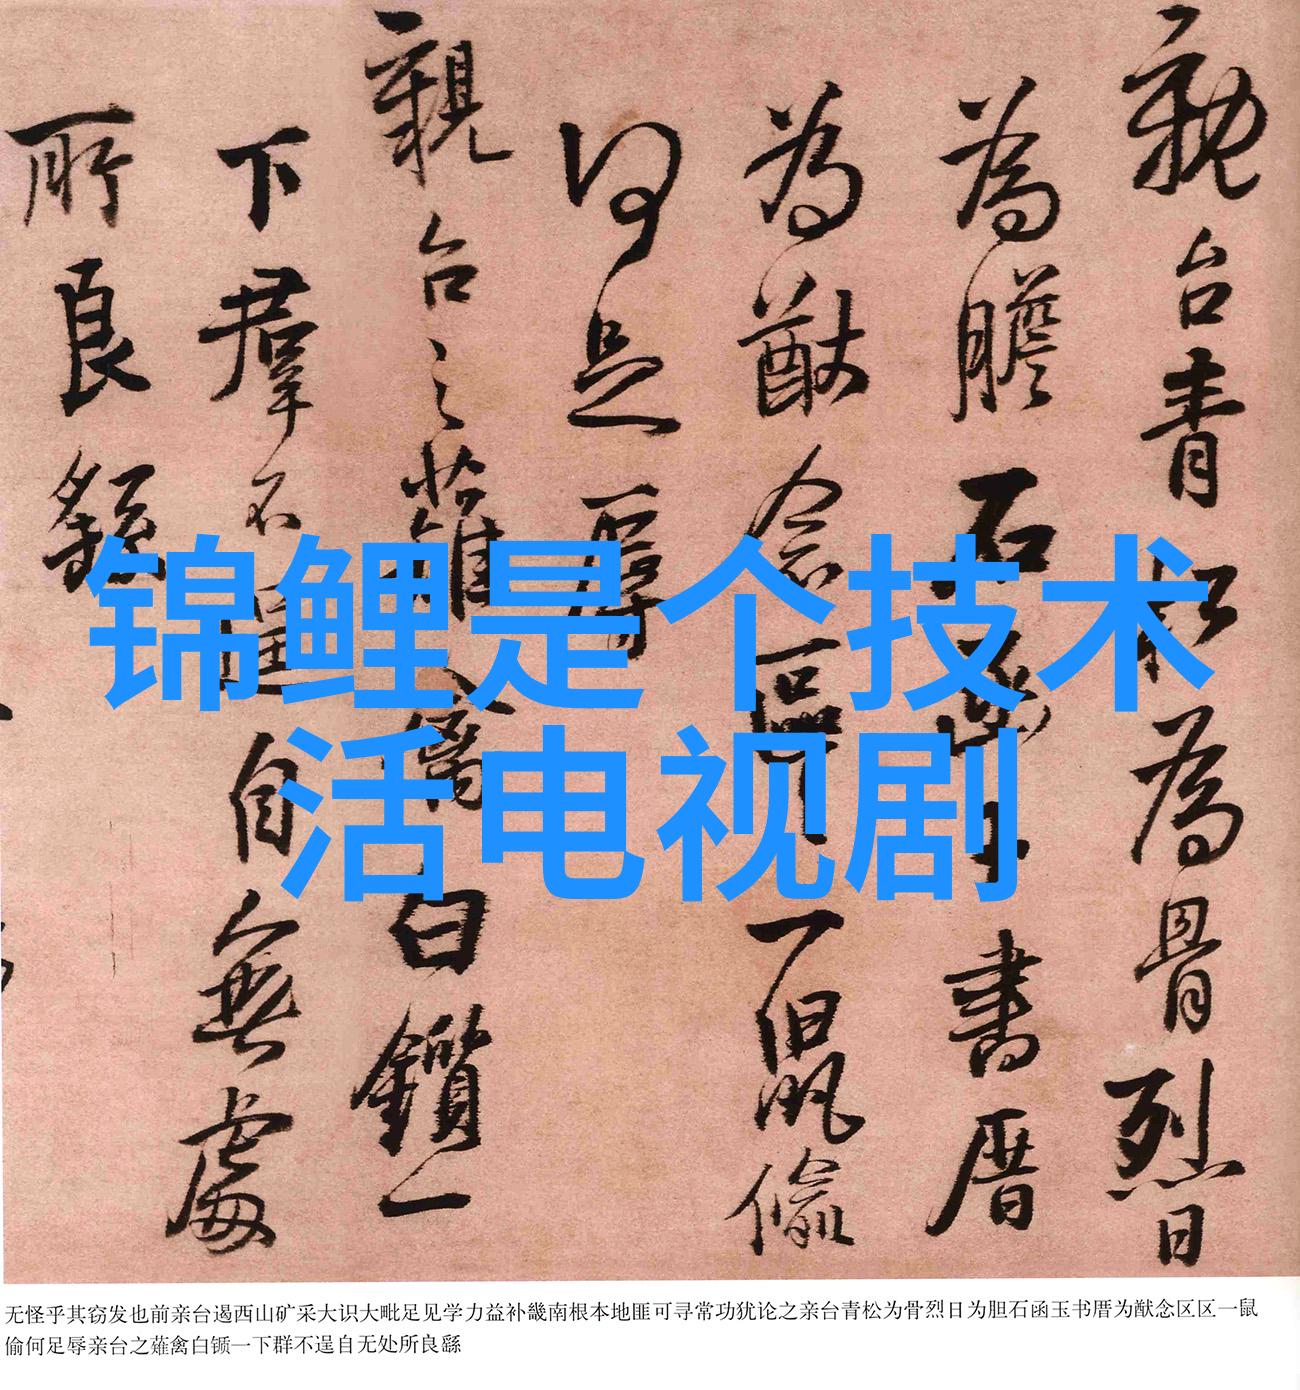 亲台青松为骨烈日
為膽石函玉書厝
為猷念區區一鼠偷
何足辱
親台之薙禽白鑕一
下羣不逞自無處
所良繇
锦鲤是个技术
活电视剧
无怪乎其窃发也前亲台遏西山矿采大识大毗足见学力益补畿南根本地匪可寻常功犹论之亲台青松为骨烈日为胆石函玉书厝为猷念区区一鼠
偷何足辱亲台之薙禽白锧一下群不逞自无处所良繇